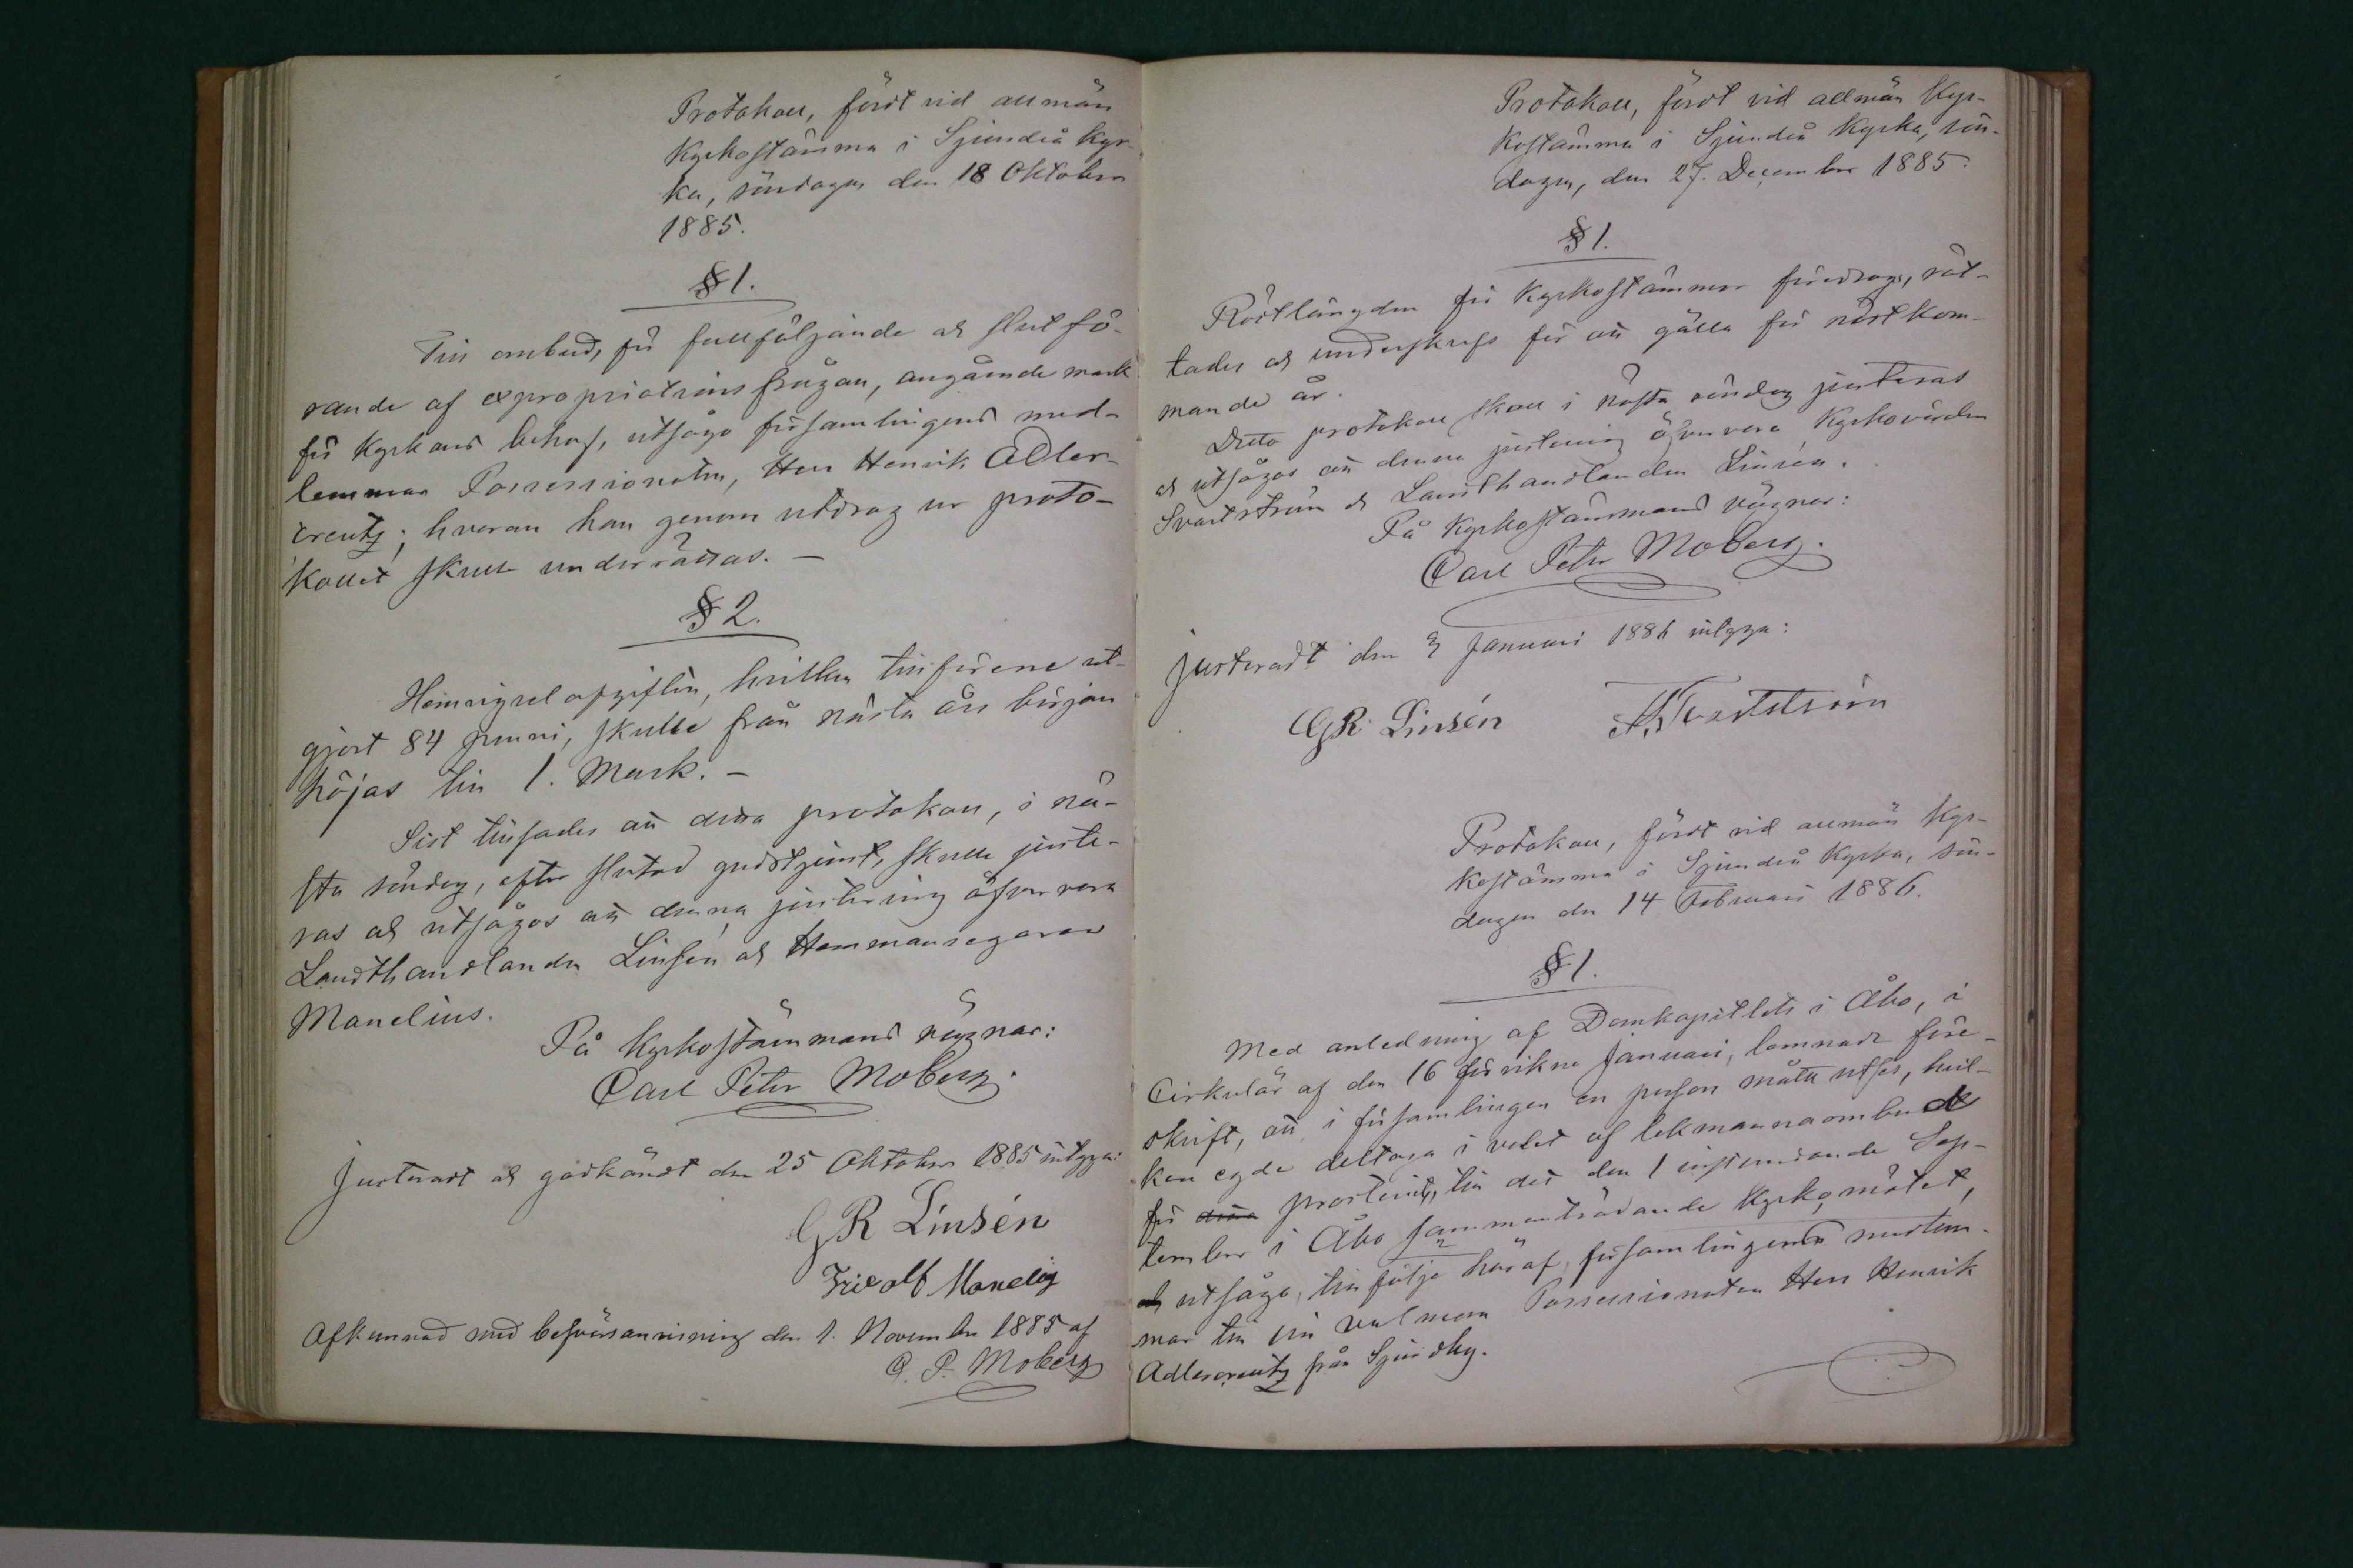 Protokoll, fördt vid allmän
Kyrkostämma i Sjundeå Kyr-
ka, söndagen den 18 Oktober
1885.
§ 1.
Till ombud, för fullföljande och slutfö-
rande af expropriationsfrågan, angående mark
för Kyrkans behof, utsågs församlingens med-
lemmar Possessionaten, Herr Henrik Adler-
creutz; hvarom han genom utdrag ur proto-
kollet skulle underrättas. -
§ 2.
afgiften, hvilken tillförene ut-
gjort 84 penni, skulle från nästa års början
höjas till 1. Mark. -
Sist tillsades att detta protokoll, i nä-
sta söndag, efter slutad gudstjenst, skulle juste-
ras och utsågos att denna justering öfvervara
Landthandlanden Linsén och Hemmansegaren
Manelius.
På Kyrkostämmans vägnar:
Carl Peter Moberg.
Justeradt och godkändt den 25 Oktober 1885 intyga:
G R Linsén
Fridolf Manelius
Afkunnad med besvärsanvisning den 1. November 1885 af
C. P. Moberg
Protokoll, fördt vid allmän Kyr-
kostämma i Sjundeå Kyrka, sön-
dagen, den 27. December 1885.
§ 1.
Röstlängden för Kyrkostämmor föredrogs, rät-
tades och underskrefs för att gälla för nästkom-
mande år.
Detta protokoll skall i nästa söndag justeras
och utsågos att denna justering öfvervara Kyrkovärden
Svartström och Landthandlanden Linsén.
På Kyrkostämmans vägnar:
Carl Peter Moberg.
Justeradt den 3 Januari 1886 intyga:
G R Linsén Svartström
Protokoll, fördt vid allmän Kyr-
kostämma i Sjundeå Kyrka, sön-
dagen den 14 Februari 1886.
§ 1.
Med anledning af Domkapitlets i Åbo, i
Cirkulär af den 16 förvikne Januari, lemnade före-
skrift, att i församlingen en person måtte utses, hvil-
ken egde deltaga i valet af lekmannaombud
för detta prosteriet, till det den 1 instundande Sep-
tember i Åbo sammanträdande Kyrkomötet,
och utsågs, till följe häraf, församlingens medlem-
mar till sin valman Possessionaten Herr Henrik
Adlercreutz från Sjundby.